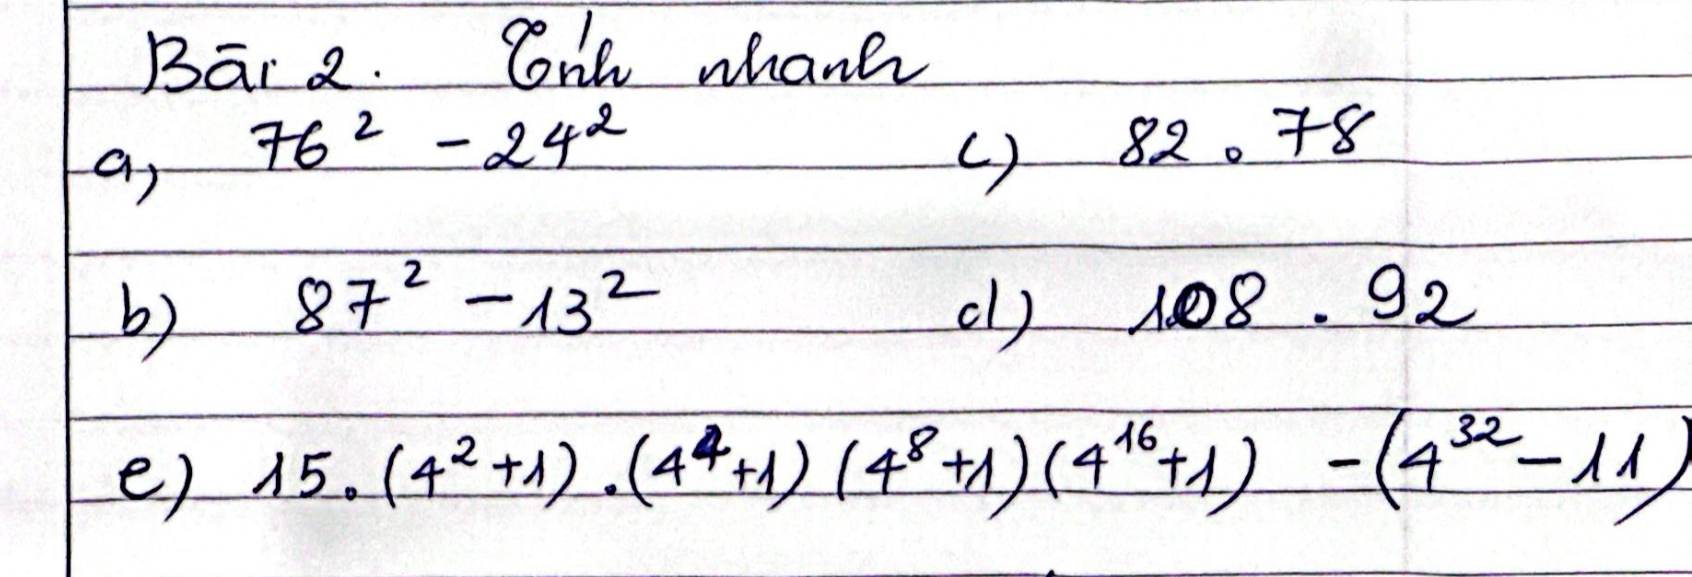 Bài 2. Tính nhanh
a, 76² - 24² c) 82 . 78
b) 87² - 13² d) 108 . 92
e) 15.(4²+1).(4⁴+1)(4⁸+1)(4¹⁶+1) -(4³²-11)